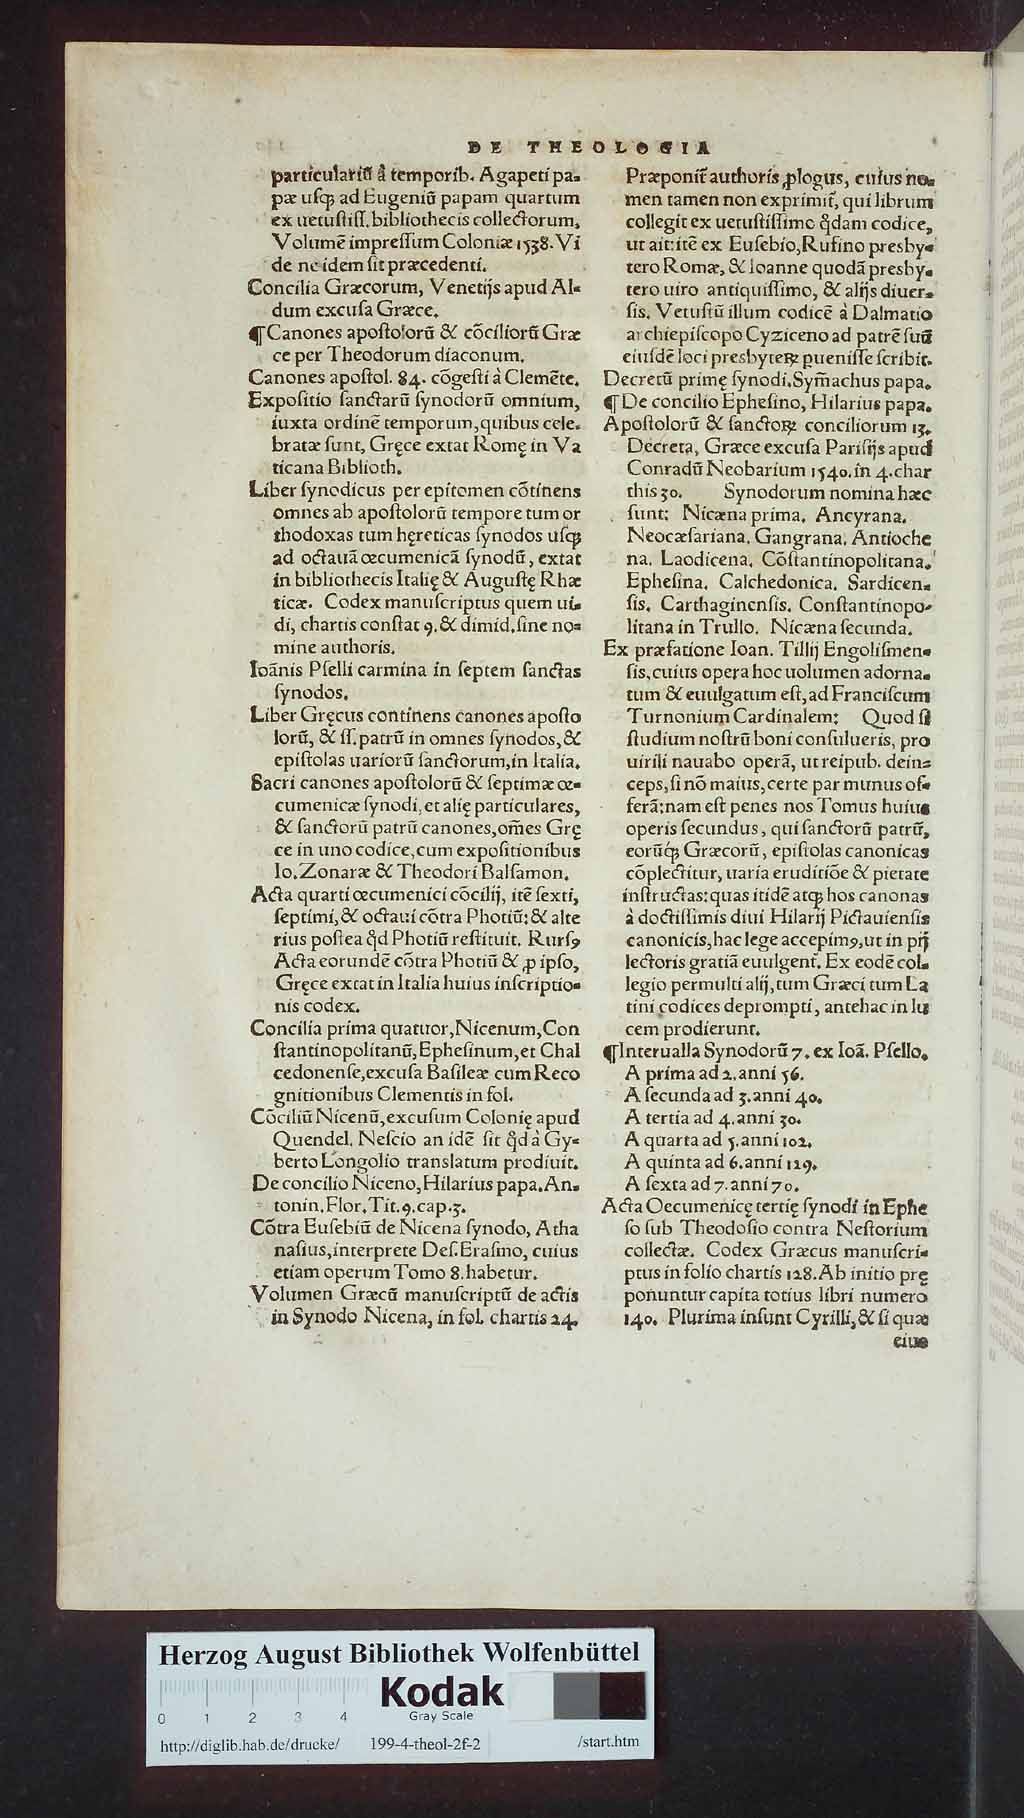 DE THEOLOGIA
particulariũ à temporib. Agapeti pa-
pæ usq; ad Eugeniũ papam quartum
ex uetustiss. bibliothecis collectorum,
Volumẽ impressum Coloniæ 1538. Vi
de ne idem sit præcedenti.
Concilia Græcorum, Venetijs apud Al-
dum excusa Græce.
¶ Canones apostolorũ & cõciliorũ Græ
ce per Theodorum diaconum.
Canones apostol. 84. cõgesti à Clemẽte.
Expositio sanctarũ synodorũ omnium,
iuxta ordinẽ temporum, quibus cele-
bratæ sunt, Gręce extat Romę in Va
ticana Biblioth.
Liber synodicus per epitomen cõtinens
omnes ab apostolorũ tempore tum or
thodoxas tum hęreticas synodos usq;
ad octauã œcumenicã synodũ, extat
in bibliothecis Italię & Augustę Rhæ
ticæ. Codex manuscriptus quem ui-
di, chartis constat 9. & dimid. sine no-
mine authoris.
Ioãnis Pselli carmina in septem sanctas
synodos.
Liber Gręcus continens canones aposto
lorũ, & ss. patrũ in omnes synodos, &
epistolas uariorũ sanctorum, in Italia.
Sacri canones apostolorũ & septimæ œ-
cumenicæ synodi, et alię particulares,
& sanctorũ patrũ canones, om̃es Grę
ce in uno codice, cum expositionibus
Io. Zonaræ & Theodori Balsamon.
Acta quarti œcumenici cõcilij, itẽ sexti,
septimi, & octaui cõtra Photiũ: & alte
rius postea qd̃ Photiũ restituit. Rursꝰ
Acta eorundẽ cõtra Photiũ & ꝓ ipso,
Gręce extat in Italia huius inscriptio-
nis codex.
Concilia prima quatuor, Nicenum, Con
stantinopolitanũ, Ephesinum, et Chal
cedonense, excusa Basileæ cum Reco
gnitionibus Clementis in fol.
Cõciliũ Nicenũ, excusum Colonię apud
Quendel. Nescio an idẽ sit qd̃ à Gy-
berto Longolio translatum prodiuit.
De concilio Niceno, Hilarius papa. An-
tonin. Flor. Tit. 9. cap. 3.
Cõtra Eusebiũ de Nicena synodo, Atha
nasius, interprete Des. Erasmo, cuius
etiam operum Tomo 8. habetur.
Volumen Græcũ manuscriptũ de actis
in Synodo Nicena, in fol. chartis 24.
Præponit̃ authoris ꝓlogus, cuius no-
men tamen non exprimit̃, qui librum
collegit ex uetustissimo qd̃am codice,
ut ait: itẽ ex Eusebio, Rufino presby-
tero Romæ, & Ioanne quodã presby-
tero uiro antiquissimo, & alijs diuer-
sis. Vetustũ illum codicẽ à Dalmatio
archiepiscopo Cyziceno ad patrẽ suũ
eiusdẽ loci presbyterꝝ ꝑuenisse scribit.
Decretũ primę synodi. Sym̃achus papa.
¶ De concilio Ephesino, Hilarius papa.
Apostolorũ & sanctoꝝ conciliorum 13.
Decreta, Græce excusa Parisijs apud
Conradũ Neobarium 1540. in 4. char
this 30. Synodorum nomina hæc
sunt: Nicæna prima. Ancyrana.
Neocæsariana. Gangrana. Antioche
na. Laodicena. Cõstantinopolitana.
Ephesina. Calchedonica. Sardicen-
sis. Carthaginensis. Constantinopo-
litana in Trullo. Nicæna secunda.
Ex præfatione Ioan. Tillij Engolismen-
sis, cuius opera hoc uolumen adorna-
tum & euulgatum est, ad Franciscum
Turnonium Cardinalem: Quod si
studium nostrũ boni consulueris, pro
uirili nauabo operã, ut reipub. dein-
ceps, si nõ maius, certe par munus of-
ferã: nam est penes nos Tomus huius
operis secundus, qui sanctorũ patrũ,
eorũq; Græcorũ, epistolas canonicas
cõplectitur, uaria eruditiõe & pietate
instructas: quas itidẽ atq; hos canonas
à doctissimis diui Hilarij Pictauiensis
canonicis, hac lege accepimꝰ, ut in pij
lectoris gratiã euulgent. Ex eodẽ col-
legio permulti alij, tum Græci tum La
tini codices deprompti, antehac in lu
cem prodierunt.
¶ Interualla Synodorũ 7. ex Ioã. Psello.
A prima ad 2. anni 56.
A secunda ad 3. anni 40.
A tertia ad 4. anni 30.
A quarta ad 5. anni 102.
A quinta ad 6. anni 129.
A sexta ad 7. anni 70.
Acta Oecumenicę tertię synodi in Ephe
so sub Theodosio contra Nestorium
collectæ. Codex Græcus manuscri-
ptus in folio chartis 128. Ab initio prę
ponuntur capita totius libri numero
140. Plurima insunt Cyrilli, & si quæ
eius
Herzog August Bibliothek Wolfenbüttel
Kodak
Gray Scale
0 1 2 3 4
http://diglib.hab.de/drucke/ 199-4-theol-2f-2 /start.htm